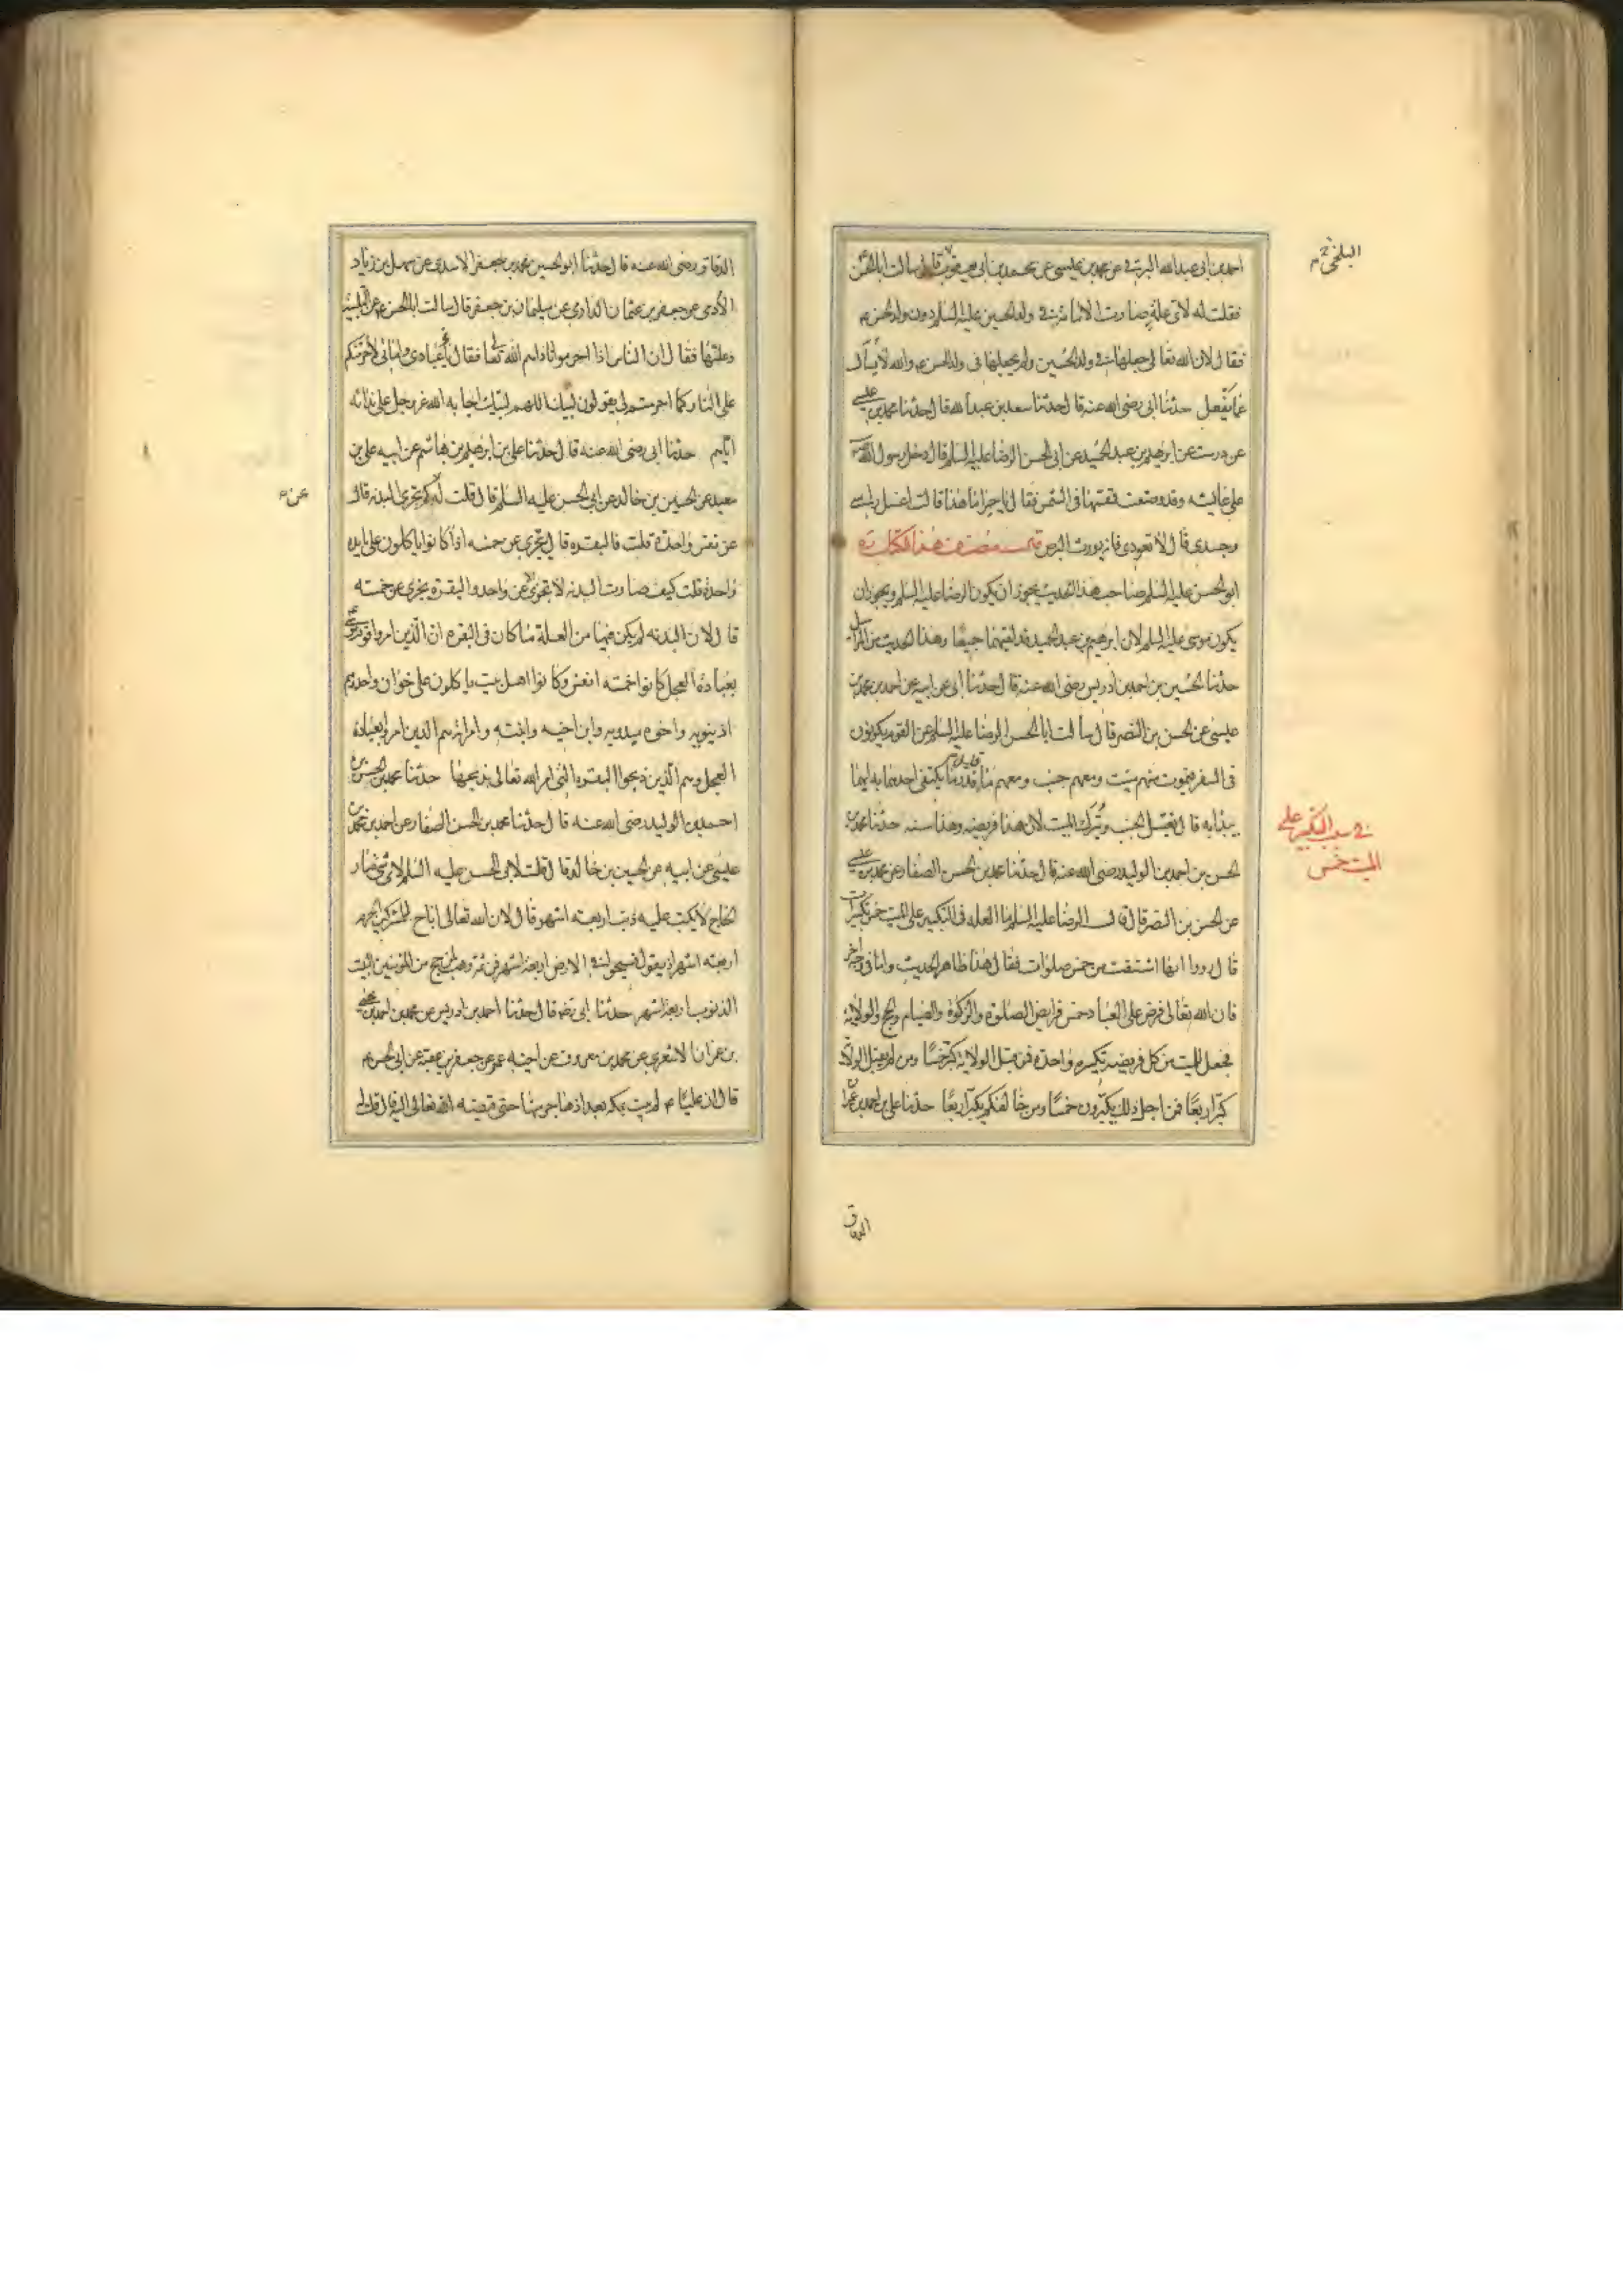 احمد بن ابى عبد الله البرقى عن محمد بن عيسى عن محمد بن ابى يعقوب قال سالت ابا الحسن
البلخى
فقلت له لاى علة صارت الامامة فى ولد الحسين عليه السلم دون ولد الحسن ع
فقال لان الله تعالى جعلها فى ولد الحسين ولم يجعلها فى ولد الحسن ع والله لا يسأل
عما يفعل حدثنا ابى رضى الله عنه قال حدثنا سعد بن عبد الله قال حدثنا محمد بن عيسى
عن درست عن ابرهيم بن عبد الحميد عن ابى الحسن الرضا عليه السلم قال دخل رسول الله ص
على عايشه وقد وضعت قمقمتها فى الشمس فقال يا حميرا ما هذا قالت اغسل راسى
وجسدى قال لا تعودى فانه يورث البرص قال مصنف هذا الكتاب ره
ابو الحسن عليه السلم صاحب هذا الحديث يجوز ان يكون الرضا عليه السلم ويجوز ان
يكون موسى عليه السلم لان ابرهيم بن عبد الحميد قد لقيهما جميعا وهذا الحديث من المراسيل
حدثنا الحسين بن احمد بن ادريس رضى الله عنه قال حدثنا ابى عن ابيه عن احمد بن محمد بن
عيسى عن الحسن بن النضر قال سالت ابا الحسن الرضا عليه السلم عن القوم يكونون
فى السفر فيموت منهم ميت ومعهم جنب ومعهم ماء قليل قدر ما يكتفى احدهما به ايهما
يبدا به قال يغتسل الجنب ويترك الميت لان هذا فريضه وهذا سنه حدثنا محمد بن
فى سبب التكبير على
الميت خمس
الحسن بن احمد بن الوليد رضى الله عنه قال حدثنا محمد بن الحسن الصفار عن محمد بن عيسى
عن الحسن بن النضر قال قال الرضا عليه السلم ما العله فى التكبير على الميت خمس تكبيرات
قال رووا انها اشتقت من خمس صلوات فقال هذا ظاهر الحديث واما فى وجه اخر
فان الله تعالى فرض على العباد خمس فرايض الصلوة والزكوة والصيام والحج والولاية
فجعل للميت من كل فريضه تكبيره واحدة فمن قبل الولاية كبر خمسا ومن لم يقبل الولاية
كبر اربعا فمن اجل ذلك يكبرون خمسا ومن خالفكم يكبر اربعا حدثنا على بن احمد بن محمد
الدقاق
الدقاق رضى الله عنه قال حدثنا ابو الحسين محمد بن جعفر الاسدى عن سهل بن زياد
الادمى عن جعفر بن عثمان الدارمى عن سليمان بن جعفر قال سالت ابا الحسن ع عن التلبية
وعلتها فقال ان الناس اذا احرموا ناداهم الله تعالى فقال يا عبادى وامائى لاحرمنكم
على النار كما احرمتم لى يقولون لبيك اللهم لبيك اجابه الله عز وجل على ندائه
اياهم حدثنا ابى رضى الله عنه قال حدثنا على بن ابرهيم بن هاشم عن ابيه على بن
معبد عن الحسين بن خالد عن ابى الحسن عليه السلم قال قلت له كم تجزى البدنه قال
عن
عن نفس واحدة قلت فالبقره قال تجزى عن خمسه اذا كانوا ياكلون على مايده
واحدة قلت كيف صارت البدنه لا تجزى الا عن واحد والبقره تجزى عن خمسه
قال لان البدنه لم يكن فيها من العلة ما كان فى البقره ان الذين امروا قوم موسى
بعبادة العجل كانوا خمسه انفس وكانوا اهل بيت ياكلون على خوان واحد وهم
اذينويه واخوه ميدويه وابن اخيه وابنته وامراته هم الذين امروا بعبادة
العجل وهم الذين ذبحوا البقره التى امر الله تعالى بذبحها حدثنا محمد بن الحسن بن
احمد بن الوليد رضى الله عنه قال حدثنا محمد بن الحسن الصفار عن احمد بن محمد بن
عيسى عن ابيه عن الحسين بن خالد قال قلت لابى الحسن عليه السلم لاى شئ صار
الحاج لا يكتب عليه ذنب اربعه اشهر قال لان الله تعالى اباح للمشركين الحرم
اربعه اشهر اذ يقول فسيحوا فى الارض اربعة اشهر فمن ثم وهب لمن حج من المؤمنين البيت
الذنوب اربعة اشهر حدثنا ابى رضه قال حدثنا احمد بن ادريس عن محمد بن احمد بن يحيى
بن عمران الاشعرى عن محمد بن معروف عن اخيه عمر عن جعفر بن عقبه عن ابى الحسن ع
قال ان عليا ع لم يبت بمكه بعد اذ هاجر منها حتى قبضه الله تعالى اليه قال قلت له